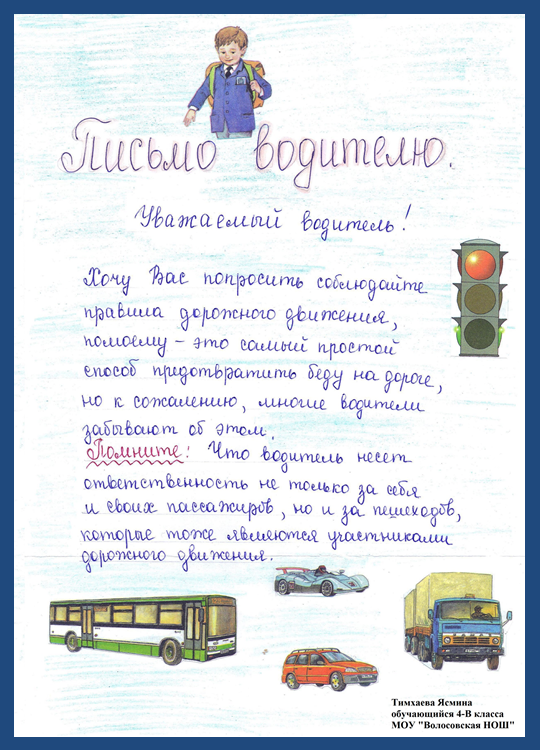 Письмо водителю.
Уважаемый водитель!
Хочу Вас попросить соблюдайте
правила дорожного движения,
помоему - это самый простой
способ предотвратить беду на дороге,
но к сожалению, многие водители
забывают об этом.
Помните: Что водитель несет
ответственность не только за себя
и своих пассажиров, но и за пешеходов,
которые тоже являются участниками
дорожного движения.
Тимхаева Ясмина
обучающийся 4-В класса
МОУ "Волосовская НОШ"